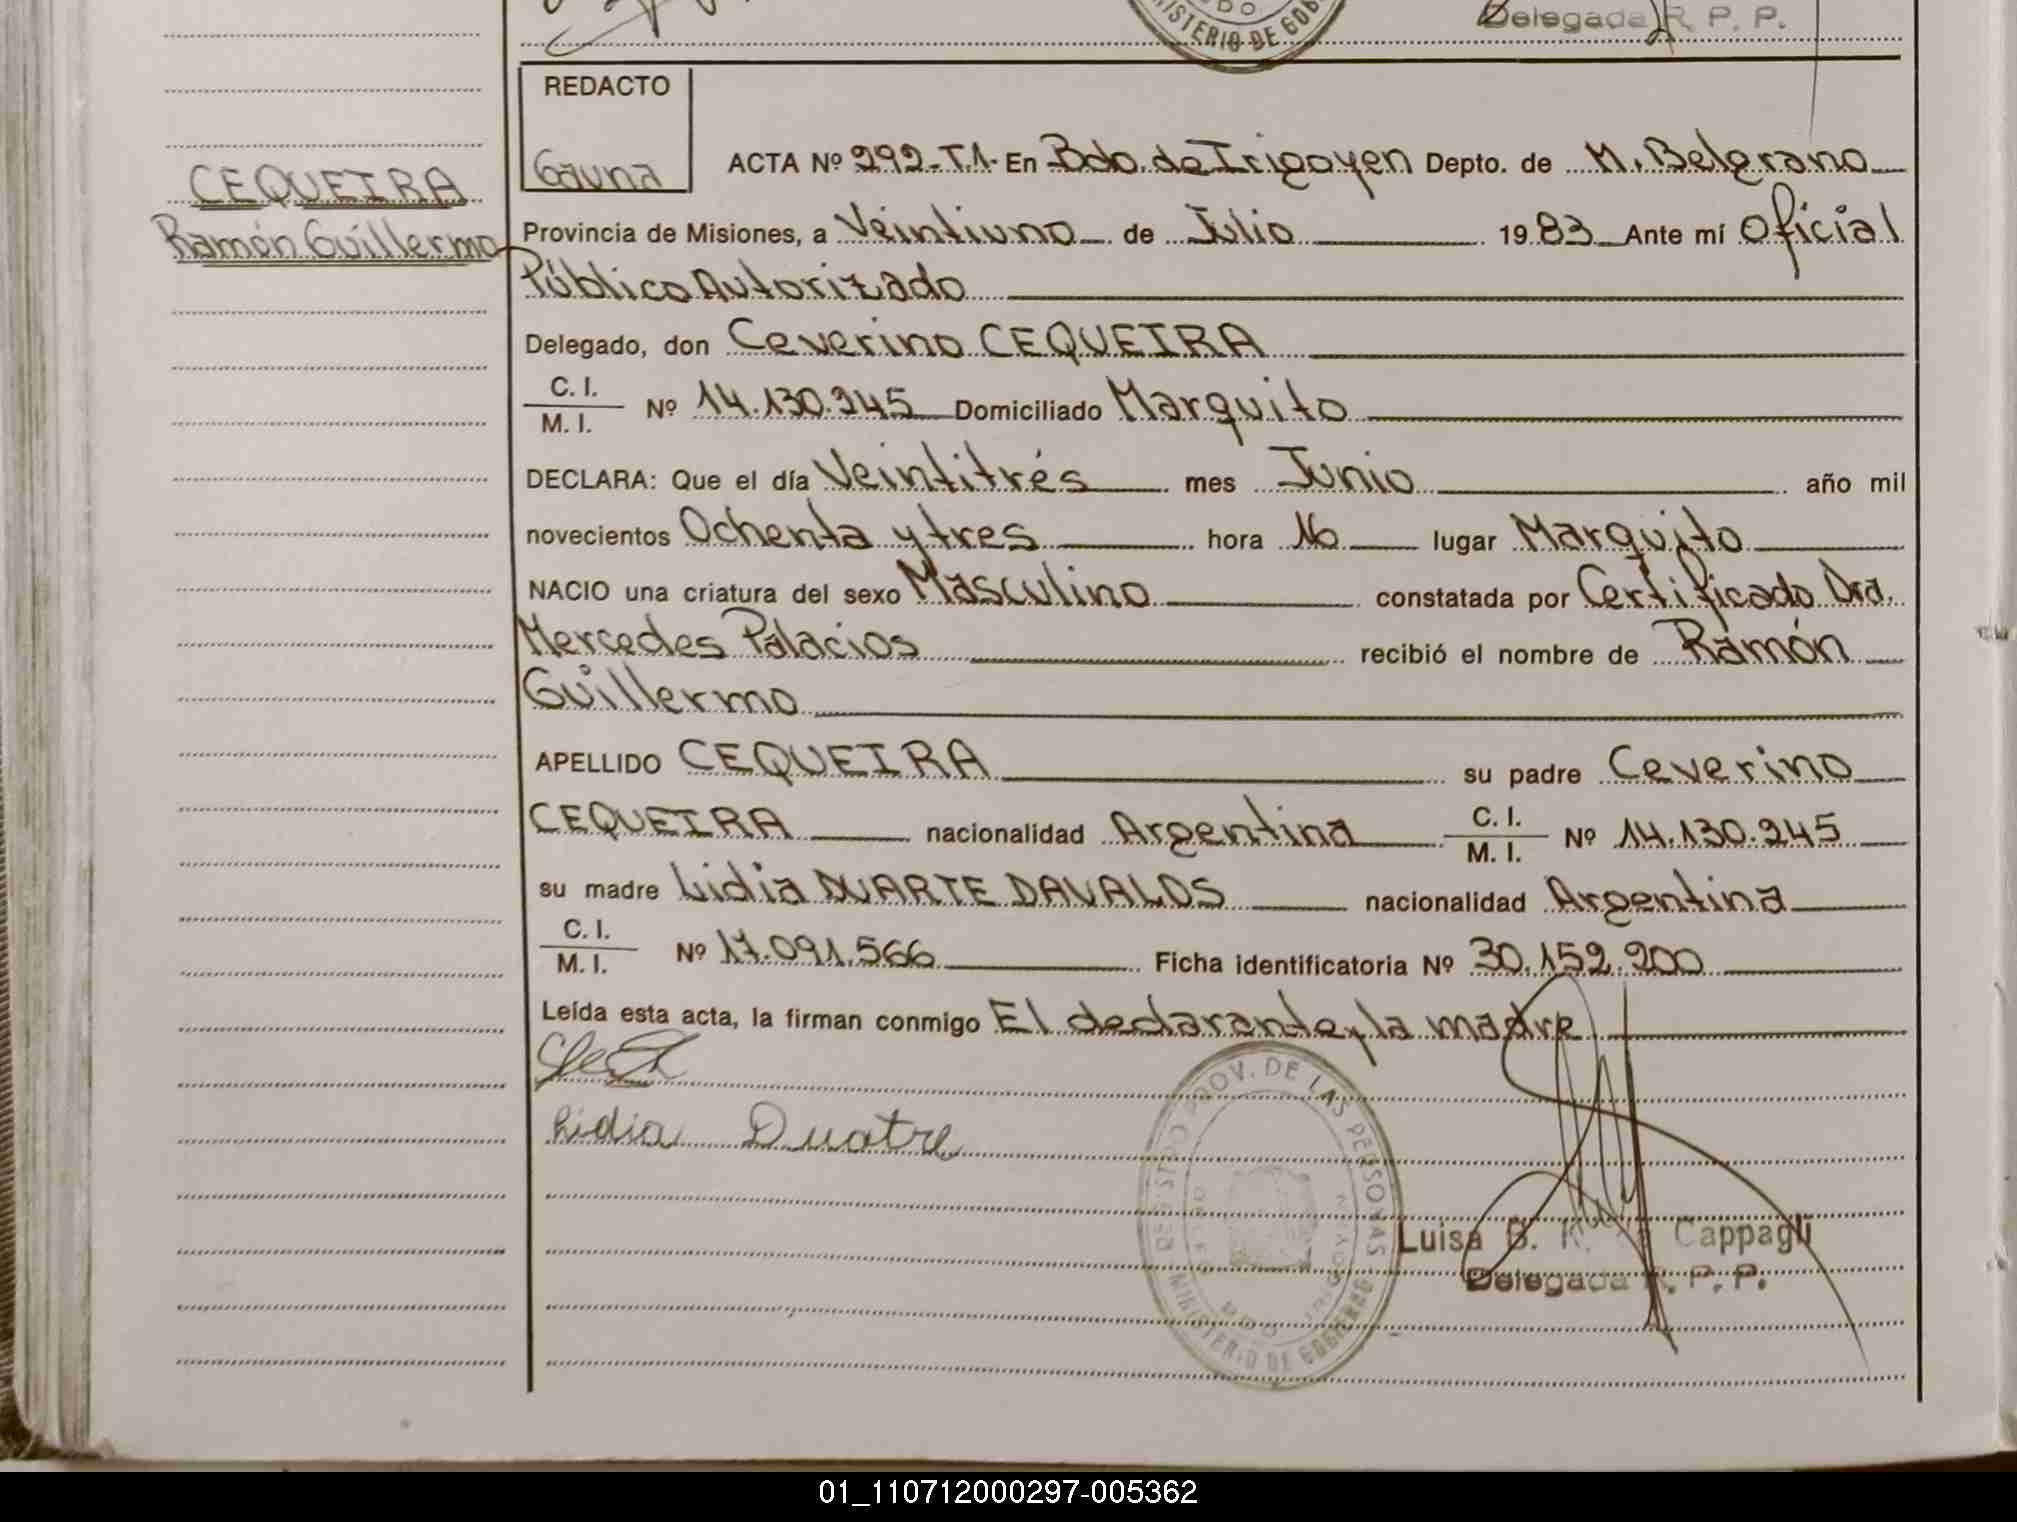 Delegada R. P. P.
MINISTERIO DE GOB
REDACTO
Gauna
CEQUEIRA
Ramón Guillermo
ACTA Nº 292-T.1- En Bdo. de Irigoyen Depto. de M. Belgrano
Provincia de Misiones, a Veintiuno de Julio 1983 Ante mí Oficial
Público Autorizado
Delegado, don Ceverino CEQUEIRA
C. I.
M. I. Nº 14.130.245 Domiciliado Marquito
DECLARA: Que el día Veintitrés mes Junio año mil
novecientos Ochenta y tres hora 16 lugar Marquito
NACIO una criatura del sexo Masculino constatada por Certificado Dra.
Mercedes Palacios recibió el nombre de Ramón
Guillermo
APELLIDO CEQUEIRA su padre Ceverino
CEQUEIRA nacionalidad Argentina C. I. M. I. Nº 14.130.245
su madre Lidia DUARTE DAVALOS nacionalidad Argentina
C. I.
M. I. Nº 17.091.566 Ficha identificatoria Nº 30.152.200
Leída esta acta, la firman conmigo El declarante y la madre
Lidia Duatre
PROV. DE LAS PERSONAS
MINISTERIO DE GOBIERNO
BDO. IRIGOYEN
Luisa B. Cappagli
Delegada R. P. P.
01_110712000297-005362